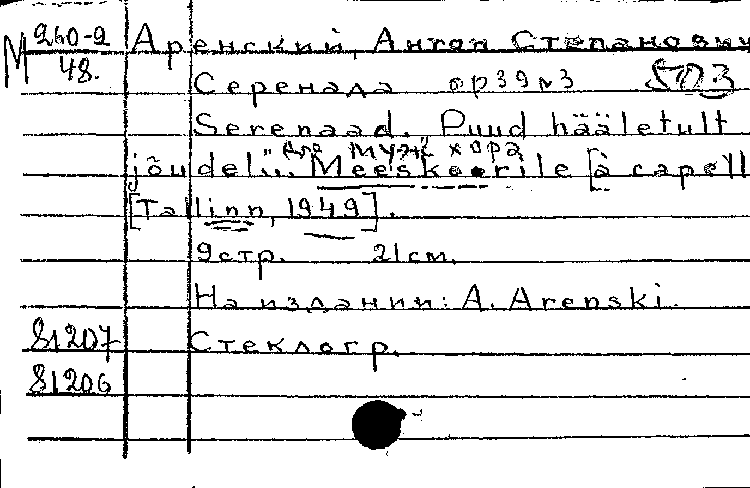 М 260-2
48.
Аренский, Антон Степанович
Серенада ор39 №3 503
Serenaad. "Puud hääletult
для муж хора
jõudel". Meeskoorile [à capell
[Tallinn, 1949].
9 стр. 21 см.
На издании: A. Arenski.
81207 Стеклогр.
81206